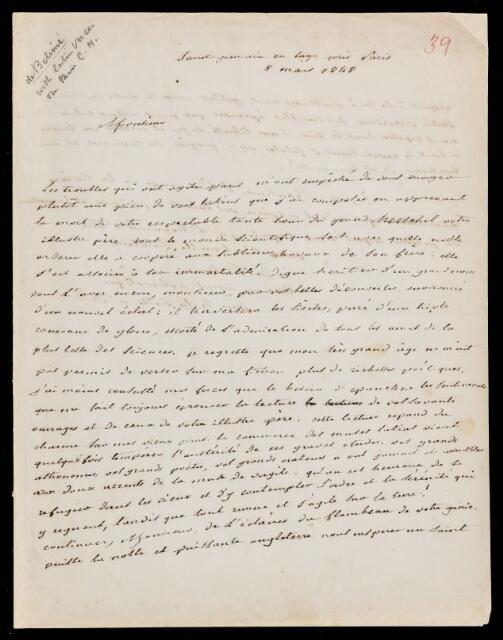 de Belimé
with Latin Verses
on Miss C. H.
39
Saint germain en laye près Paris
8 mars 1848
Monsieur
Les troubles qui ont agité paris m'ont empêché de vous envoyer
plutôt une pièce de vers latins que j'ai composée en apprenant
la mort de votre respectable tante soeur du grand Herschel votre
illustre père. tout le monde scientifique sait avec quelle noble
ardeur elle a coopéré aux sublimes travaux de son frère: elle
s'est associée à son immortalité. Digne héritier d'un grand nom
dont l' avez encore, monsieur, par vos belles découvertes, environné
d'un nouvel éclat; il traversera les siècles, paré d'une triple
couronne de gloire, escorté de l'admiration de tous les amis de la
plus belle des sciences. je regrette que mon très grand âge ne m'ait
pas permis de verser sur ma fiction plus de richesses poétiques.
j'ai moins consulté mes forces que le besoin d'épancher les sentiments
que me fait toujours éprouver la lecture de vos savants
ouvrages et de ceux de votre illustre père. cette lecture répand du
charme sur mes vieux jours. le commerce des muses latines vient
quelquefois tempérer l'austérité de ces grandes études. vos grands
astronomes, vos grands poètes, vos grands orateurs ont jamais été insensibles
aux doux accents de la muse de virgile. qu'on est heureux de se
refugier dans les cieux et d'y contempler l'ordre et la sérénité qui
y regnent, tandis que tout remue et s'agite sur la terre!
continuez, Monsieur, de l'éclairer du flambeau de votre génie.
puisse la noble et puissante angleterre nous inspirer un saint